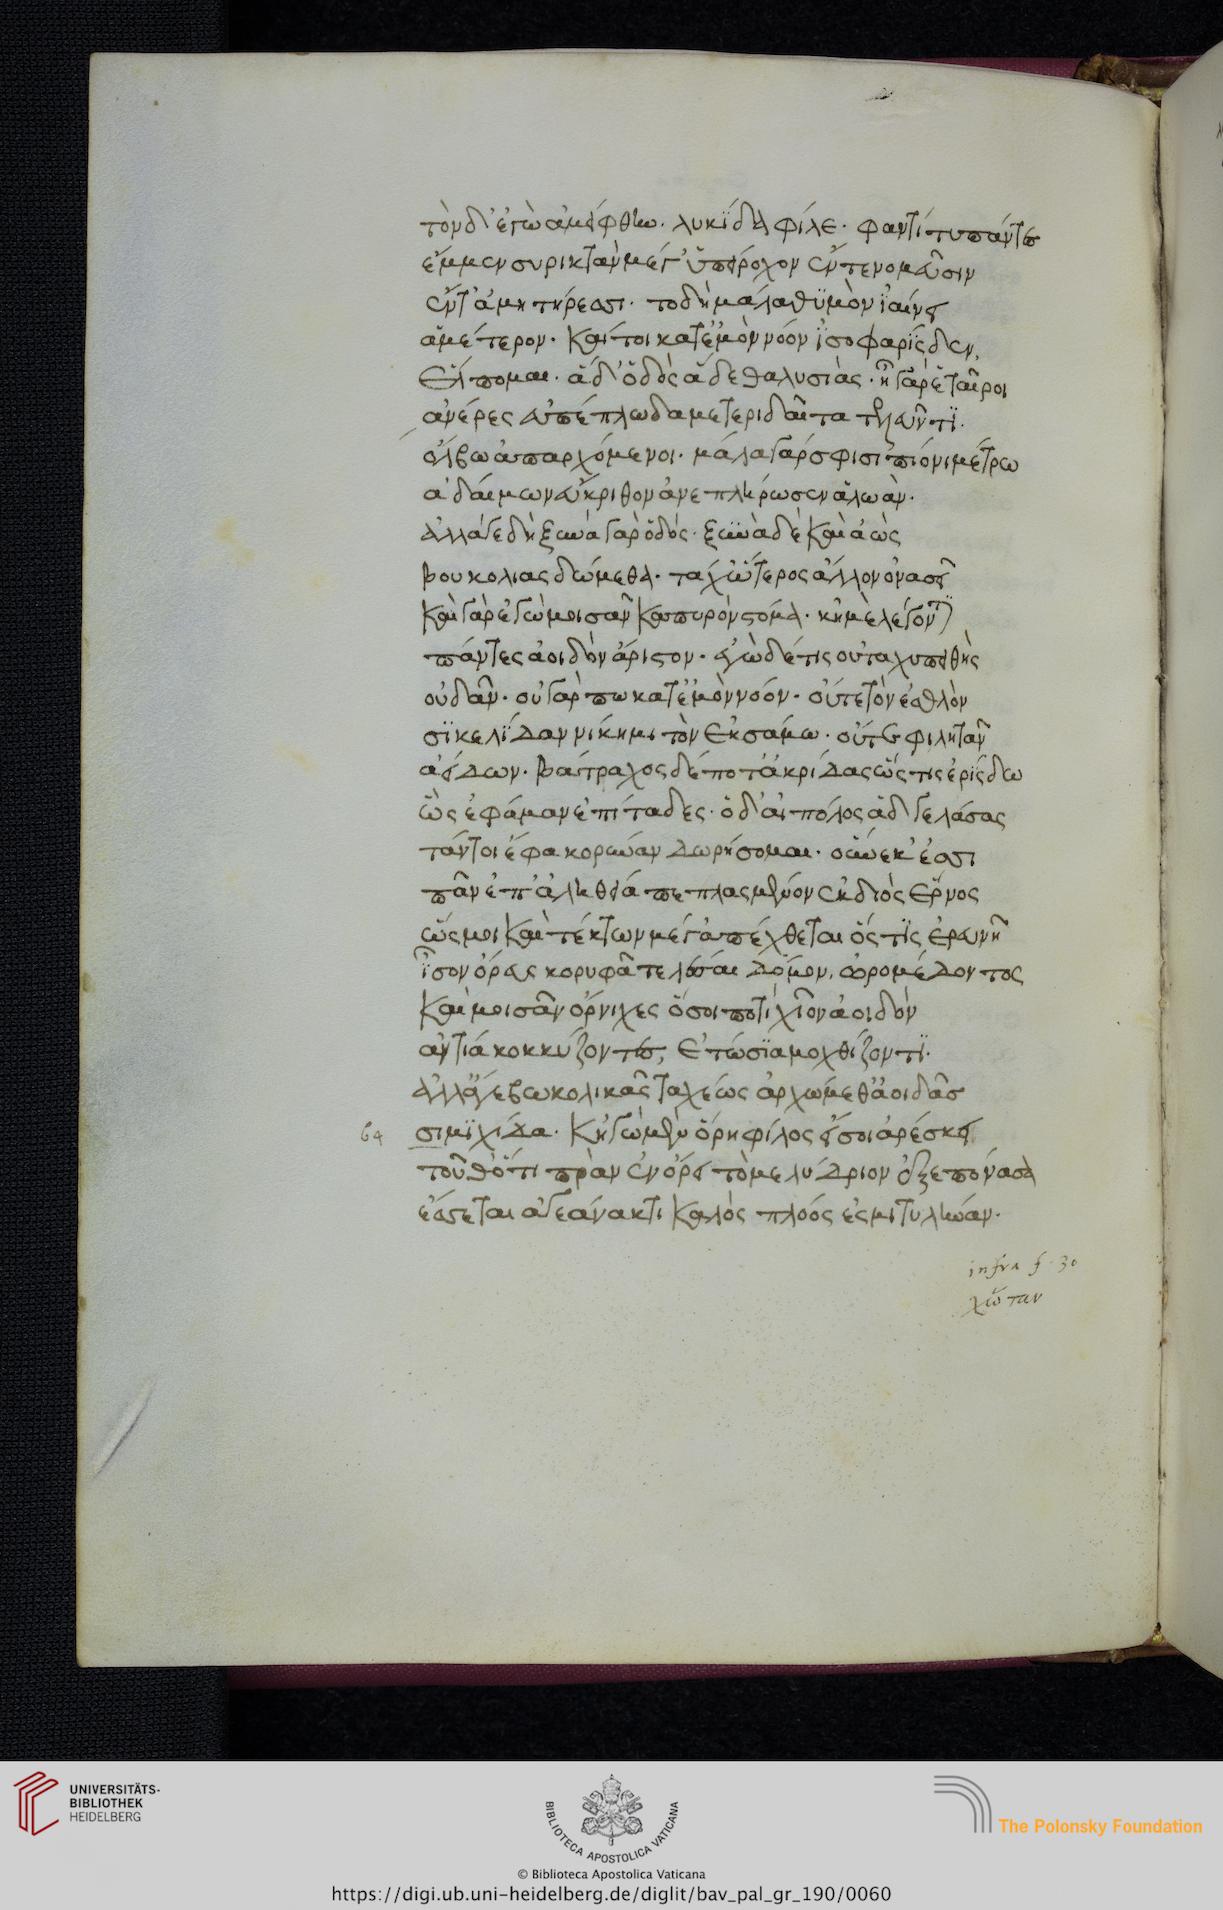 τὸν δ' ἐγὼ ἀμείφθην. λυκίδα φίλε. φαντί τυ πάντες
ἔμμεν συρικτὰν μέγ' ὑπείροχον ἔν τε νομεῦσιν
ἔν τ' ἀμητήρεσσι. τὸ δὴ μάλα θυμὸν ἰαίνει
ἁμέτερον. καί τοι κατ' ἐμὸν νόον ἰσοφαρίσδεν,
ἔλπομαι. ἁ δ' ὁδὸς ἅδε θαλυσιάς. ἦ γὰρ ἑταῖροι
ἀνέρες εὐπέπλω δαμέτερι δαῖτα τελεῦντι.
ὄλβω ἀπαρχόμενοι. μάλα γάρ σφισι πίονι μέτρω
ἁ δαίμων εὔκριθον ἀνεπλήρωσεν ἀλωάν.
ἀλλ' ἄγε δὴ ξυνὰ γὰρ ὁδός. ξυνὰ δὲ καὶ ἀὼς
βουκολιασδώμεθα. τάχ' ὥτερος ἄλλον ὀνασεῖ
καὶ γὰρ ἐγὼ μοισᾶν καπυρὸν στόμα. κἠμὲ λέγοντι
πάντες ἀοιδὸν ἄριστον. ἐγὼ δέ τις οὐ ταχυπειθὴς
οὐ δᾶν. οὐ γάρ πω κατ' ἐμὸν νόον. οὔτε τὸν ἐσθλὸν
σικελίδαν νίκημι τὸν ἐκ σάμω. οὔτε φιλητᾶν
ἀείδων. βάτραχος δέ ποτ' ἀκρίδας ὥς τις ἐρίσδω
ὣς ἐφάμαν ἐπίταδες. ὁ δ' αἰπόλος ἁδὺ γελάσας
τάν τοι ἔφα κορύναν δωρήσομαι. οὕνεκ' ἐσσὶ
πᾶν ἐπ' ἀλαθείᾳ πεπλασμένον ἐκ διὸς ἔρνος
ὥς μοι καὶ τέκτων μέγ' ἀπέχθεται ὅς τις ἐρευνῇ
ἶσον ὄρευς κορυφᾷ τελέσαι δόμον, ὠρομέδοντος
καὶ μοισᾶν ὄρνιχες ὅσοι ποτὶ χῖον ἀοιδὸν
ἀντία κοκκύζοντες, ἐτώσια μοχθίζοντι.
ἀλλ' ἄγε βωκολικᾶς ταχέως ἀρχώμεθ' ἀοιδᾶς
64 σιμιχίδα. κἠγὼ μὲν ὅρη φίλος εἴ σοι ἀρέσκει
τοῦθ' ὅτι πρὰν ἐν ὄρει τὸ μελύδριον ἐξεπόνασα
ἔσσεται ἀγεάνακτι καλὸς πλόος ἐς μιτυλήναν.
infra f. 30
χὤταν
UNIVERSITÄTS-
BIBLIOTHEK
HEIDELBERG
BIBLIOTECA APOSTOLICA VATICANA
The Polonsky Foundation
© Biblioteca Apostolica Vaticana
https://digi.ub.uni-heidelberg.de/diglit/bav_pal_gr_190/0060